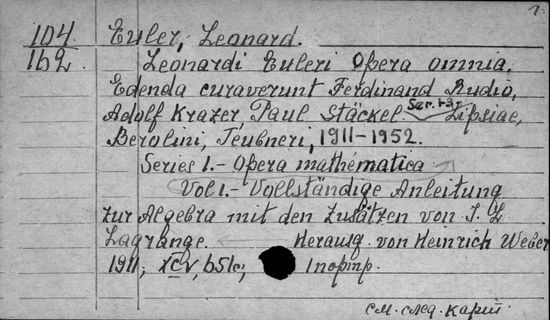 1.
104. Euler, Leonard.
162 Leonardi Euleri Opera omnia.
Edenda curaverunt Ferdinand Rudio,
Adolf Krazer Paul Stäckel. Lipsiae,
Berolini, Teubneri, 1911-1952.
Series 1.- Opera mathématica
Vol 1.- Vollständige Anleitung
zur Algebra mit den Zusätzen von J. L.
Lagrange. Herausg. von Heinrich Weber
1911, XCV, 651c, 1 портр.
см. след. карт